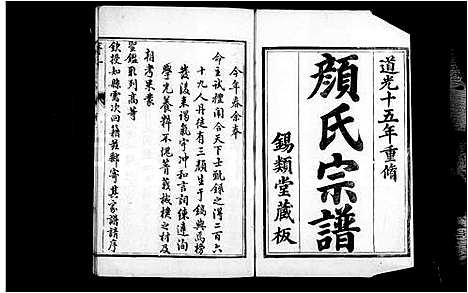 道光十五年重脩
顔氏宗譜
錫類堂藏板
序一
今年春余奉
命主試禮闈合天下士甄錄之得二百六
十九人丹徒有三顔生于鎬與焉榜
發後来謁氣宇冲和言詞練達洵
學充養粹不愧菁莪棫樸之材及
朝考果蒙
聖鑑取列高等
欽授知縣需次回籍兹郵寄其家譜請序